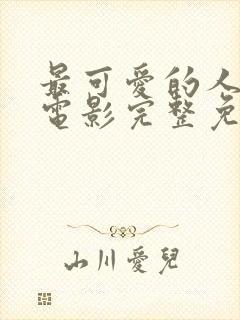 最可愛的人
電影完整免
山川愛兒